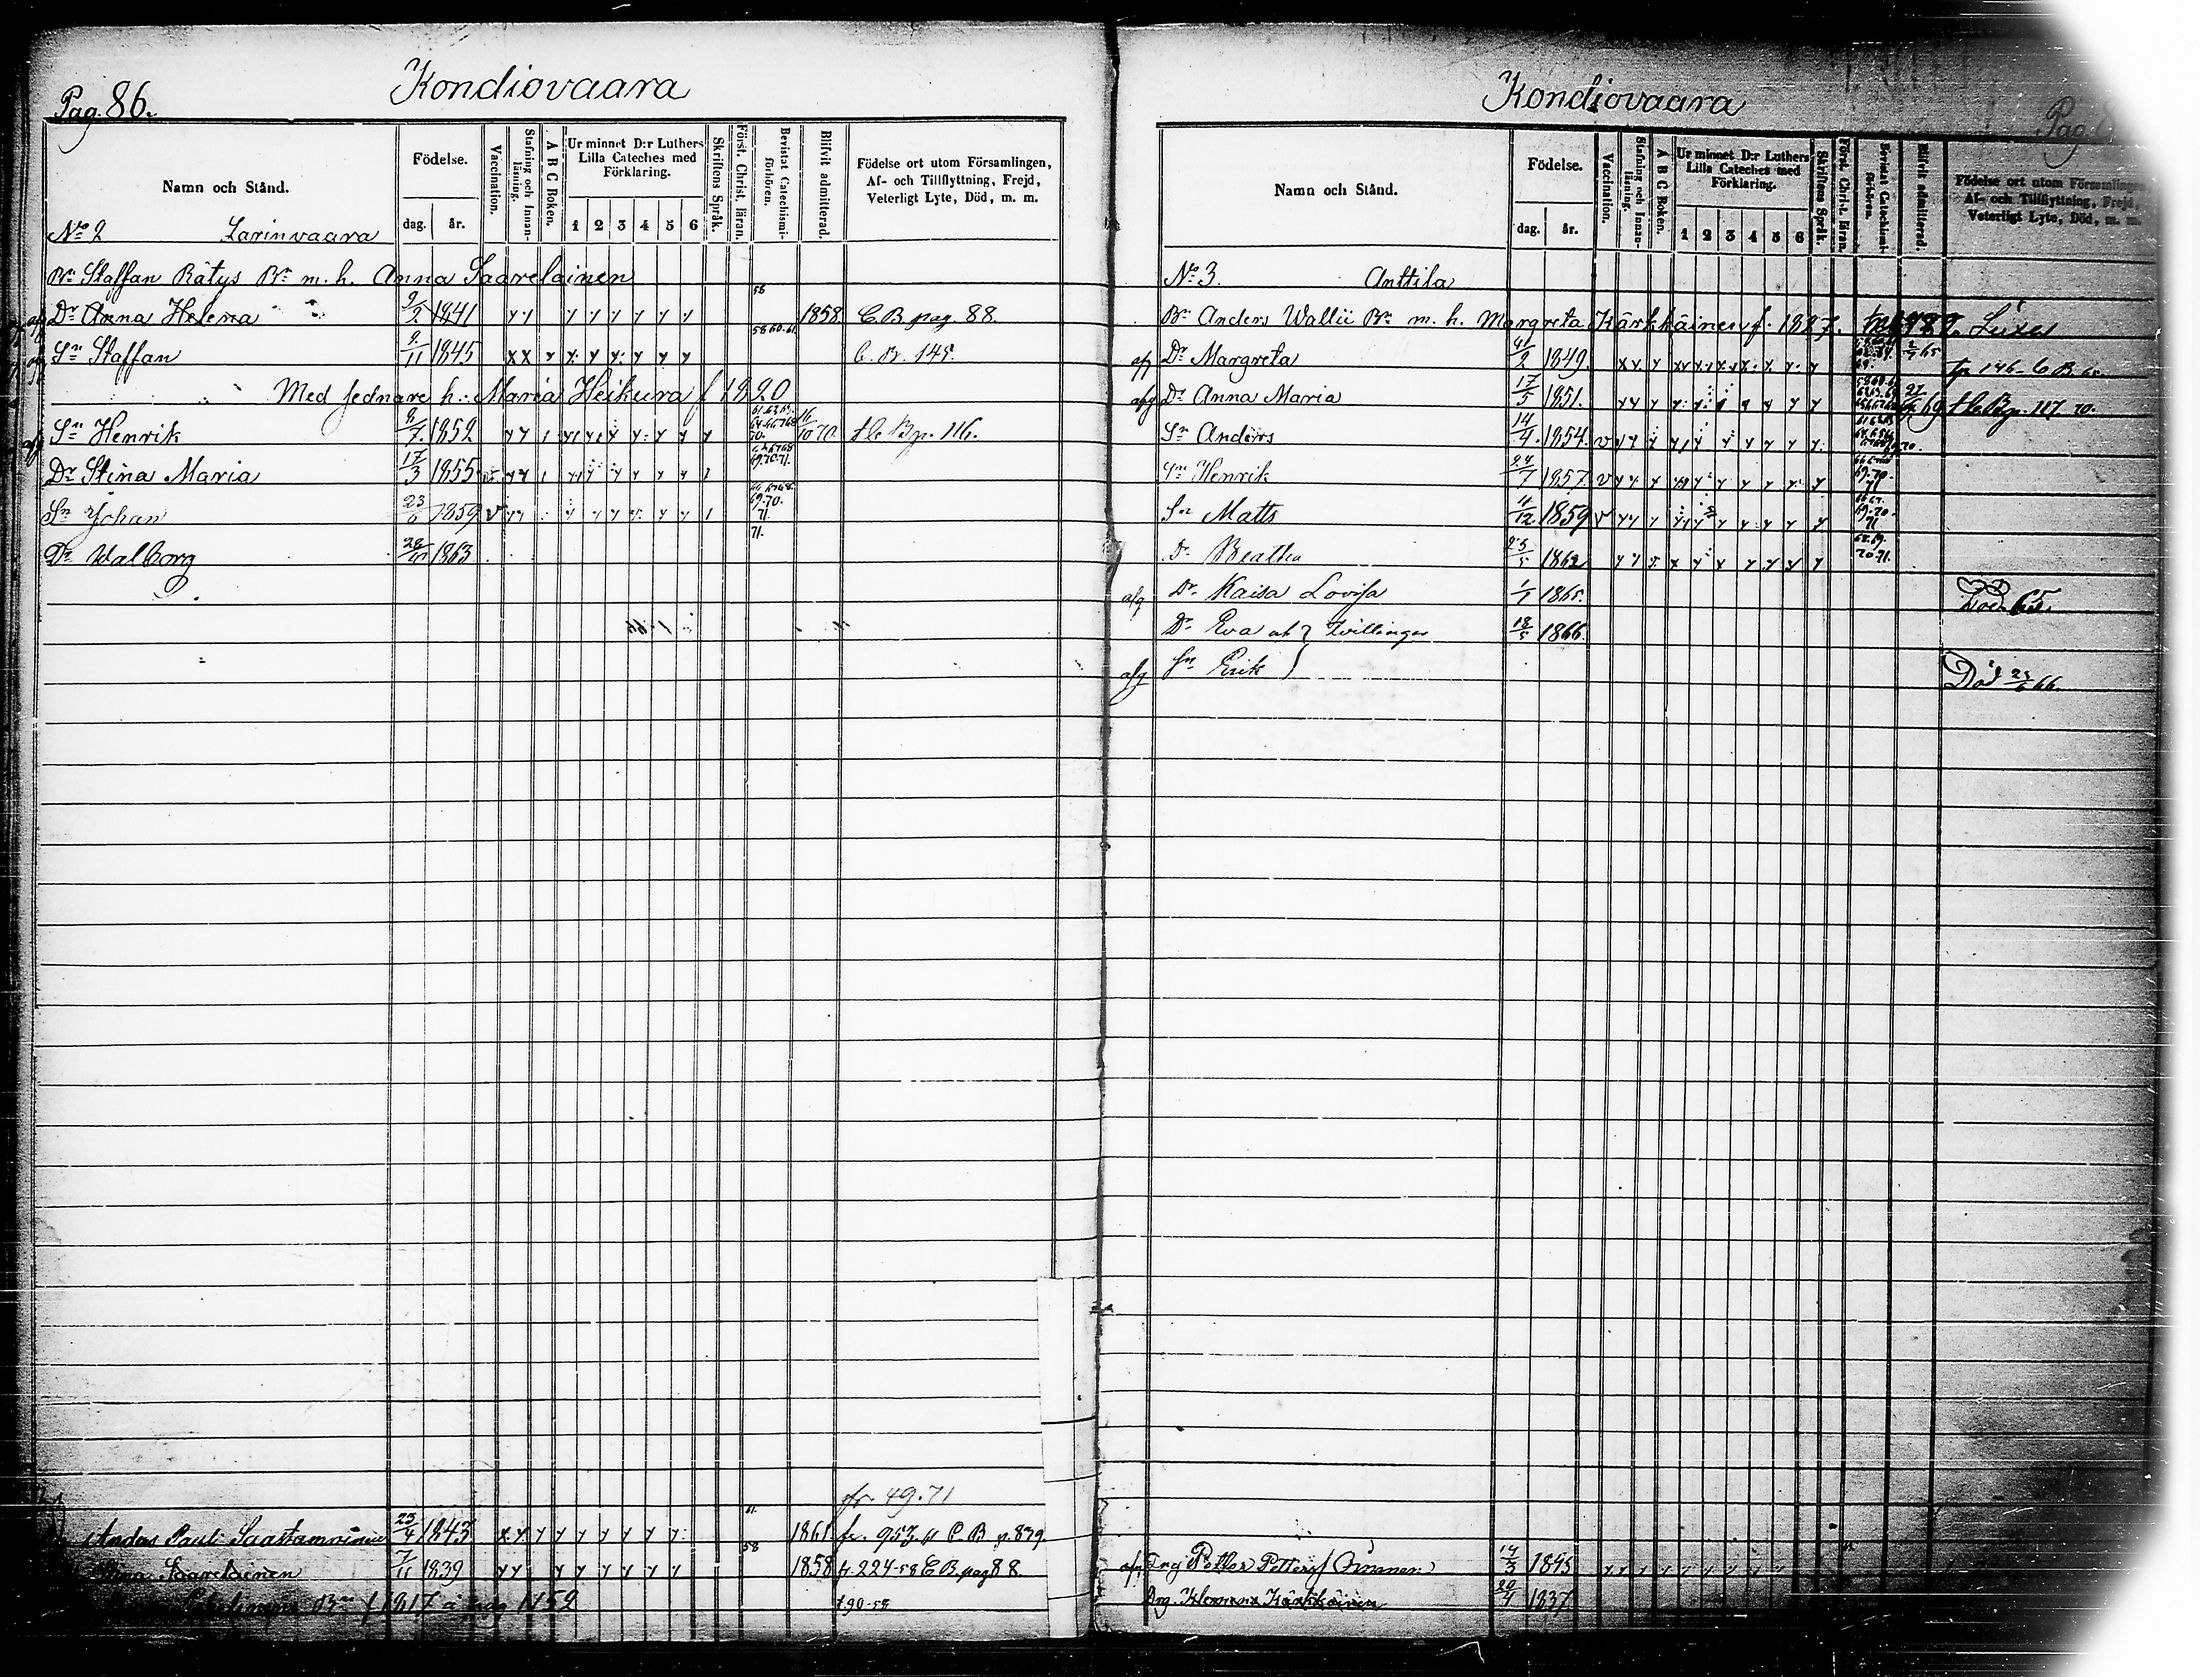 Pag. 86.
Kondiovaara
Namn och Stånd.
Födelse.
dag. år.
Vaccination.
Stafning och Innanläsning.
A B C Boken.
Ur minnet D:r Luthers Lilla Cateches med Förklaring.
1 2 3 4 5 6
Skriftens Språk.
Först. Christ. läran.
Bevistat Catechismiförhören.
Blifvit admitterad.
Födelse ort utom Församlingen, Af- och Tillflyttning, Frejd, Veterligt Lyte, Död, m. m.
No 2 Larinvaara
Bn Staffan Rätys Bn m. h. Anna Saarelainen
Dr Anna Helena 9/2 1841 58 1858 C.B. pag. 88.
Sn Staffan 9/11 1845 58 60.61 C. B. 145.
Med sednare h. Maria Heikura f 1820
Sn Henrik 8/7 1852 70. 16/10 70 t lc B p. 116.
Dr Stina Maria 17/3 1855 69.70.71.
Sn Johan 23/6 1859 69.70. 71.
Dr Walborg 28/10 1863 71.
fr. 49.71
Anders Paul: Saastamoinen 23/4 1843 61. 1861 fr. 953. C B p. 839.
Stina Saarelainen 7/11 1839 58 1858 fr 224-58 C B. pag 88.
Bn f 1817 a pag 1152 t 90-58
Kondiovaara
Pag. 8
Namn och Stånd.
Födelse.
dag. år.
Vaccination.
Stafning och Innanläsning.
A B C Boken.
Ur minnet D:r Luthers Lilla Cateches med Förklaring.
1 2 3 4 5 6
Skriftens Språk.
Först. Christ. läran.
Bevistat Catechismiförhören.
Blifvit admitterad.
Födelse ort utom Församlingen, Af- och Tillflyttning, Frejd, Veterligt Lyte, Död, m. m.
No 3. Anttila
Bn Anders Wallii Bn m. h. Margreta Kärkkäinen f. 1827.
afg Dr Margreta /2 1849. 65 p 146- C B. 65.
afg Dr Anna Maria 17/5 1851. 69 t lc B p. 117 70.
Sn Anders 14/4 1854
Sn Henrik 24/7 1857 69.70. 71
Sn Matts /12 1859 69.70. 71
Dr Beatha 23/5 1862 68.69. 70.71.
afg Dr Kaisa Lovisa 1/7 1865. Död 65.
Dr Eva och } tvillingar 18/5 1866.
afg Sn Erik } Död 66.
afg Drg Petter Petterss 14/3 1845
Drg. Klemens Kärkkäinen 20/4 1837